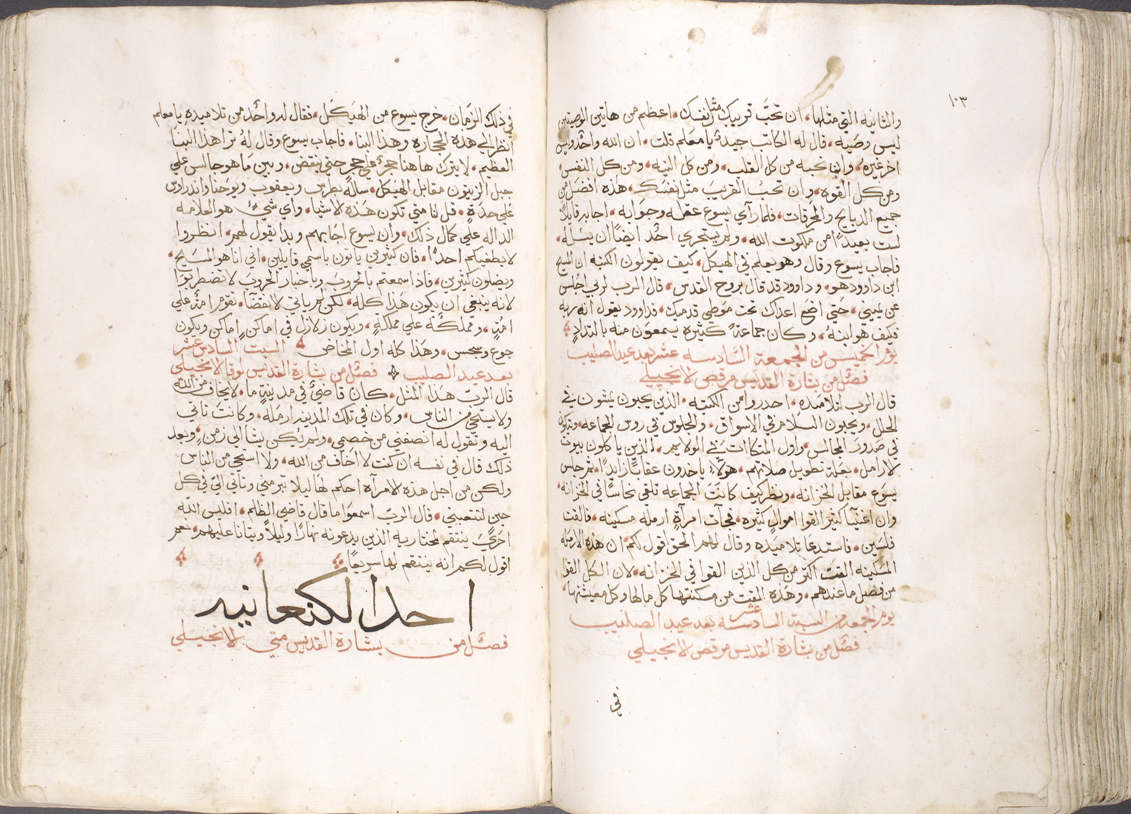 ١٠٣
والثانيه التي مثلها ان تحب قريبك مثل نفسك اعظم من هاتين الوصيتين
ليس وصيه قال له الكاتب جيدًا يا معلم قلت ان الله واحد وليس
اخر غيره وان تحبه من كل القلب ومن كل النيه ومن كل النفس
ومن كل القوه وان تحب القريب مثل نفسك هذه افضل من
جميع الدبايح والمحرقات فلما راي يسوع عقله وجوابه اجابه قايلًا
لست بعيدًا من ملكوت الله ولم يستجري احد ايضًا ان يسأله
فاجاب يسوع وقال وهو يعلم في الهيكل كيف يقولون الكتبه ان المسيح
ابن داوود هو وداوود قد قال بروح القدس قال الرب لربي اجلس
عن يميني حتي اضع اعداك تحت موطي قدميك فداوود يقول انه ربه
فكيف هو ابنه وكان جماعة كثيره يسمعون منه بالتداد
يوم الخميس من الجمعة السادسه عشر بعد عيد الصليب
فصل من بشارة القديس مرقص لانجيلي
قال الرب لتلاميذه احدروا من الكتبه الذين يحبون يمشون في
الحلل ويحبون السلام في الاسواق والجلوس في روس الجماعه وتكون
في صدور المجالس واول المتكاات في الولايم الذين ياكلون بيوت
لارامل بعلة تطويل صلاتهم هولاء ياخدون عقابًا زايدًا ثم جلس
يسوع مقابل الخزانه ونظر كيف كانت الجماعه تلقي نحاسًا في الخزانه
وان اغنيا كثير القوا اموال كثيره فجآت امرآة ارمله مسكينه فالقت
فلسين فاستدعا تلاميده وقال لهم الحق اقول لكم ان هذه الارمله
المسكينه القت اكثر من كل الذين القوا في الخزانه لان الكل القوا
من فضل ما عندهم وهده القت من مسكنتها كل مالها وكل معيشتها
يوم الجمعه من السبة السادسة عشر بعد عيد الصليب
فصل من بشارة القديس مرقص لانجيلي
في
في ذلك الزمان خرج يسوع من الهيكل فقال له واحد من تلاميده يا معلم
انظر الي هده الحجاره وهدا البنا فاجاب يسوع وقال له ترا هذا البنا
العظيم لا يترك هاهنا حجر علي حجر حتي ينقض وبين ما هو جالس علي
جبل الزيتون مقابل الهيكل سأله بطرس ويعقوب ويوحنا واندراوس
علي حدة قل لنا متي تكون هذه لاشيا واي شيء هو العلامه
الداله علي كمال ذلك وان يسوع اجابهم وبدا يقول لهم انظروا
لا يطغيكم احدًا فان كثيرين ياتون باسمي قايلين اني انا هو المسيح
ويضلون كثيرين فادا سمعتم بالحروب وباخبار الحروب لا تضطربوا
لانه ينبغي ان يكون هذا كله لكن لم ياتي لانقضا تقوم امة علي
امة ومملكة علي مملكة ويكون زلازل في اماكن اماكن ويكون
جوع وسجس وهدا كله اول المخاض السبت السادس عشر
بعد عيد الصليب فصل من بشارة القديس لوقا لانجيلي
قال الرب هذا المثل كان قاضي في مدينة ما لا يخاف من الله
ولا يستحي من الناس وكان في تلك المدينه ارمله وكانت تاتي
اليه وتقول له انصفني من خصمي ولم تكن يشا الي زمن وبعد
ذلك قال في نفسه ان كنت لا اخاف من الله ولا استحي من الناس
ولكن من اجل هذه لامرآه احكم لها ليلا تبرمني وتاتي الي في كل
حين لتتعبني قال الرب اسمعوا ما قال قاضي الظلم افليس الله
احري ينتقم لمختاريه الدين يدعونه نهارًا وليلًا ويتانا عليهم نعم
اقول لكم انه ينتقم لها سريعًا
احد الكنعانيه
فصل من بشارة القديس متي لانجيلي